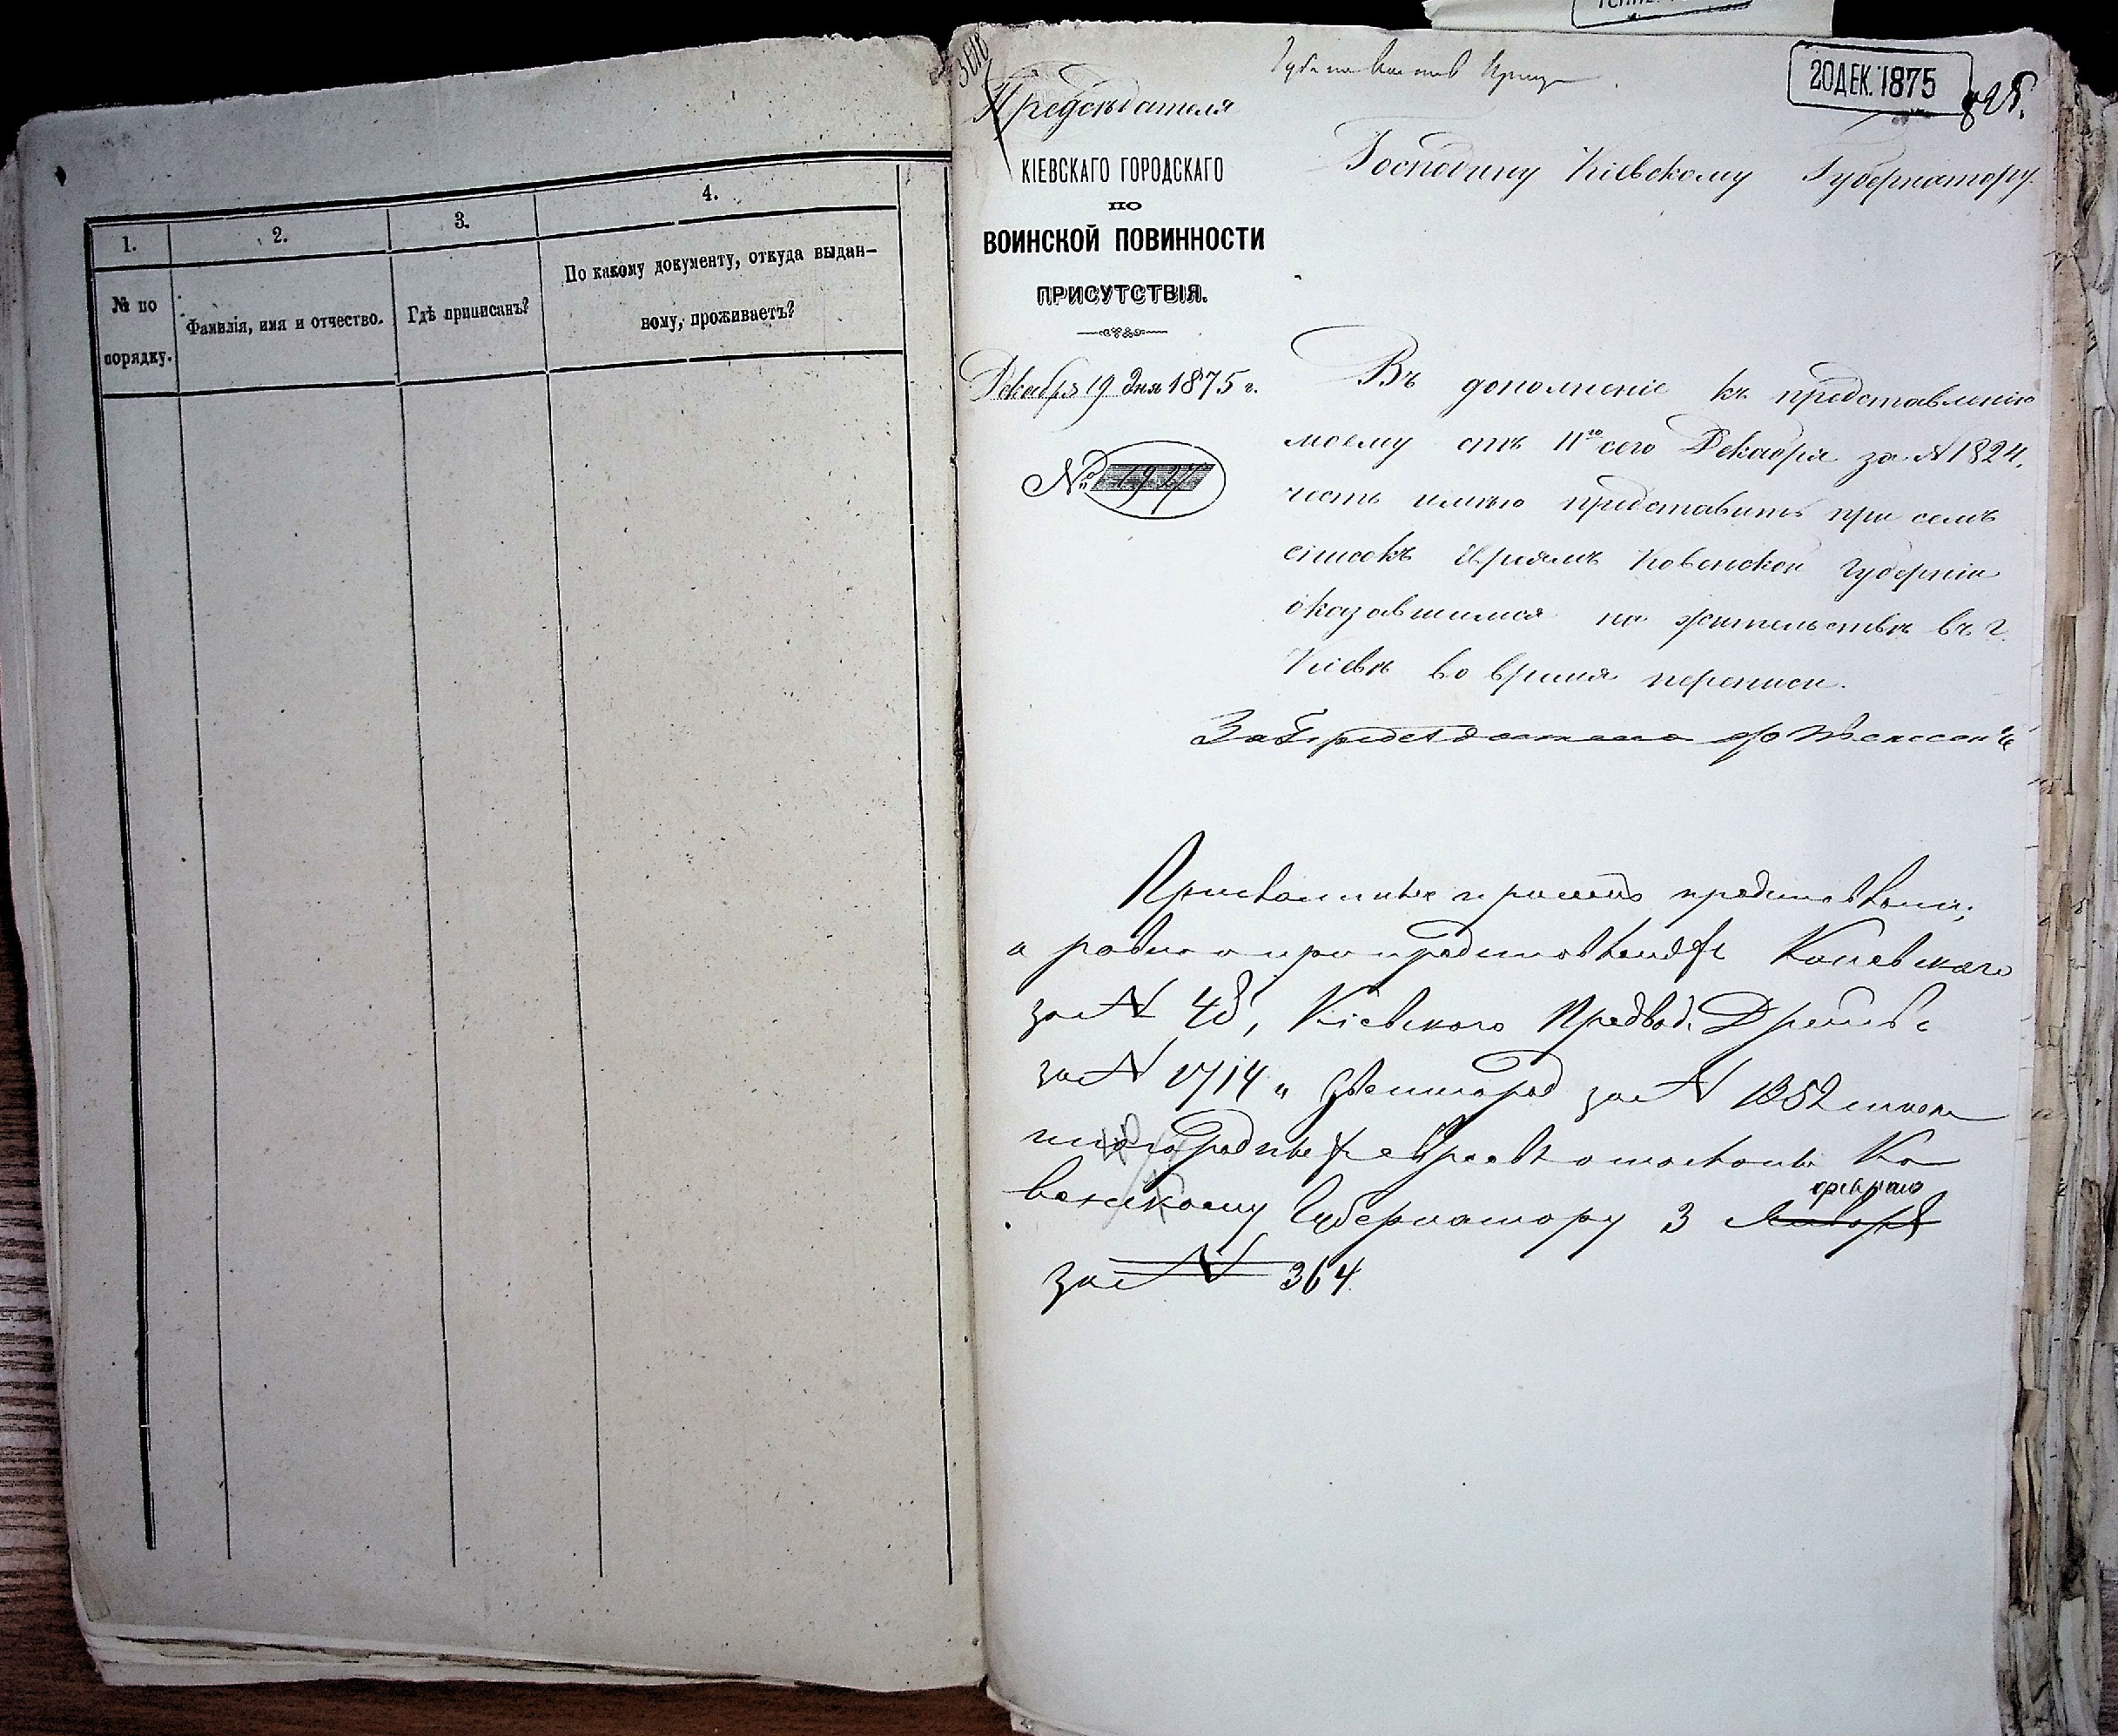 1.
2.
3.
4.
№ по порядку.
Фамилія, имя и отчество.
Гдѣ приписанъ?
По какому документу, откуда выдан-
ному, проживаетъ?
20 ДЕК. 1875
Предсѣдателя
КІЕВСКАГО ГОРОДСКАГО
ПО
ВОИНСКОЙ ПОВИННОСТИ
ПРИСУТСТВІЯ.
Декабря 19 дня 1875 г.
№ 1927
Господину Кіевскому Губернатору
Въ дополненіе къ представленію
моему отъ 11го сего Декабря за № 1824,
честь имѣю представить при семъ
списокъ Евреямъ Ковенской губерніи
оказавшимся на жительствѣ въ г.
Кіевѣ во время переписи.
За Предсѣдателя
а равно и при представленіях Каневскаго
за № 48, Кіевского Предвод. Двр
за № 1714 и Звенигород за № 1852 списки
иногородных евреев Ко
венскому Губернатору 3 Января
февраля
за № 364